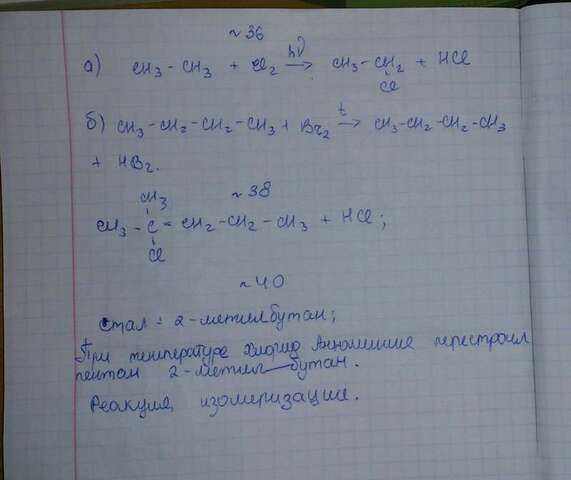 ~36
hν
а) CH3 - CH3 + Cl2 → CH3 - CH2 + HCl
Cl
t
б) CH3 - CH2 - CH2 - CH3 + Br2 → CH3 - CH2 - CH2 - CH3
+ HBr.
~38
CH3
CH3 - C = CH2 - CH2 - CH3 + HCl;
Cl
~40
стал = 2-метилбутан;
При температуре хлорид Аллюминие перестроил
пентан 2-метил бутан.
Реакция изомеризации.